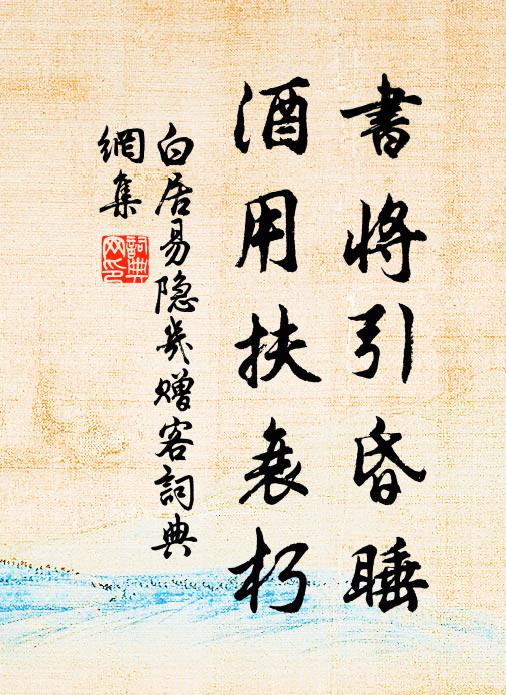 書將引昏睡
酒用扶衰朽
白居易隐几赠客詞典
網集
詞典
网印